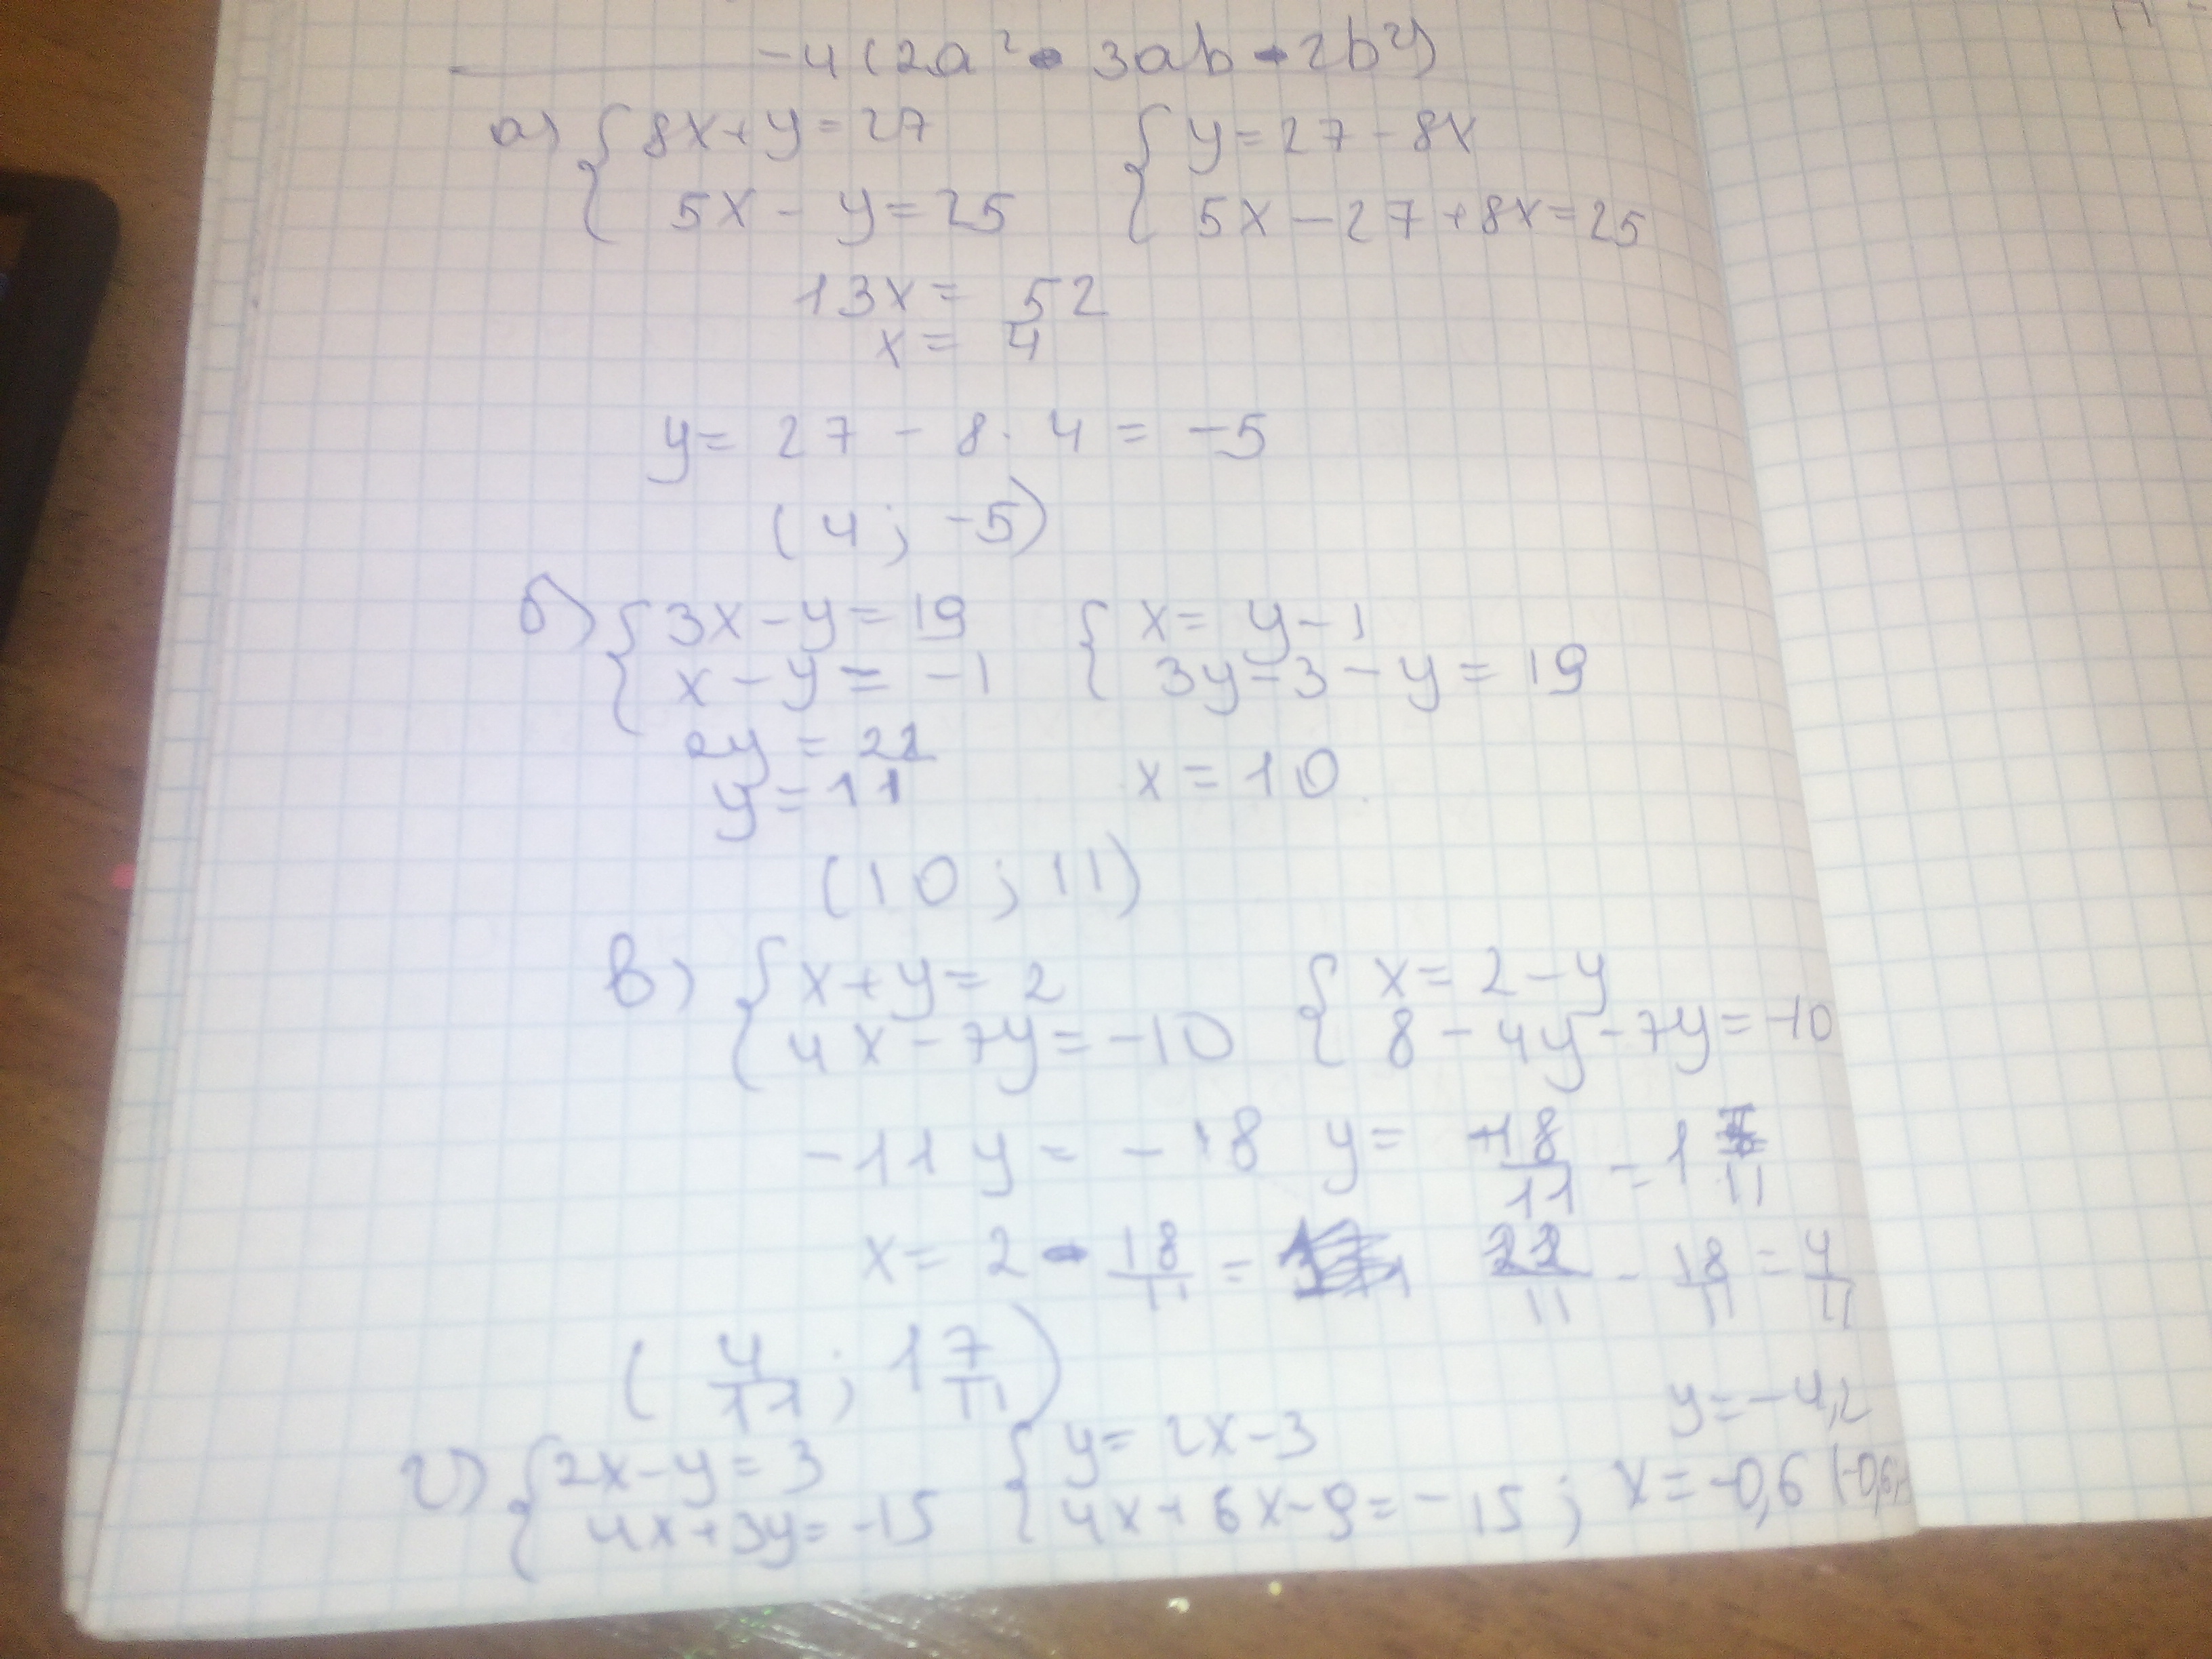 -4(2a² - 3ab - 2b²)
а) { 8x+y=27 { y=27-8x
5x-y=25 5x-27+8x=25
13x= 52
x= 4
y= 27 - 8·4 = -5
(4; -5)
б) { 3x-y=19 { x= y-1
x-y= -1 3y-3-y=19
2y = 22
y=11 x=10
(10; 11)
в) { x+y=2 { x=2-y
4x-7y=-10 8-4y-7y=-10
-11y = -18 y= 18/11 = 1 /11
x= 2 - 18/11 = 22/11 - 18/11 = 4/11
(4/11; 1 7/11)
y=-4,2
г) { 2x-y=3 { y=2x-3
4x+3y=-15 4x+6x-9=-15; x=-0,6 (-0,6;